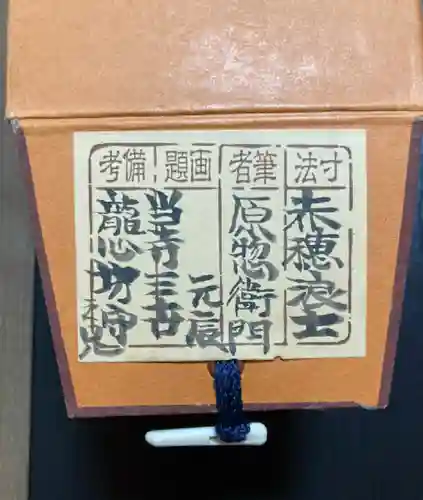 寸法
赤穂浪士
筆者
原惣衛門
元辰
画題
当寺三古
備考
龍心坊守